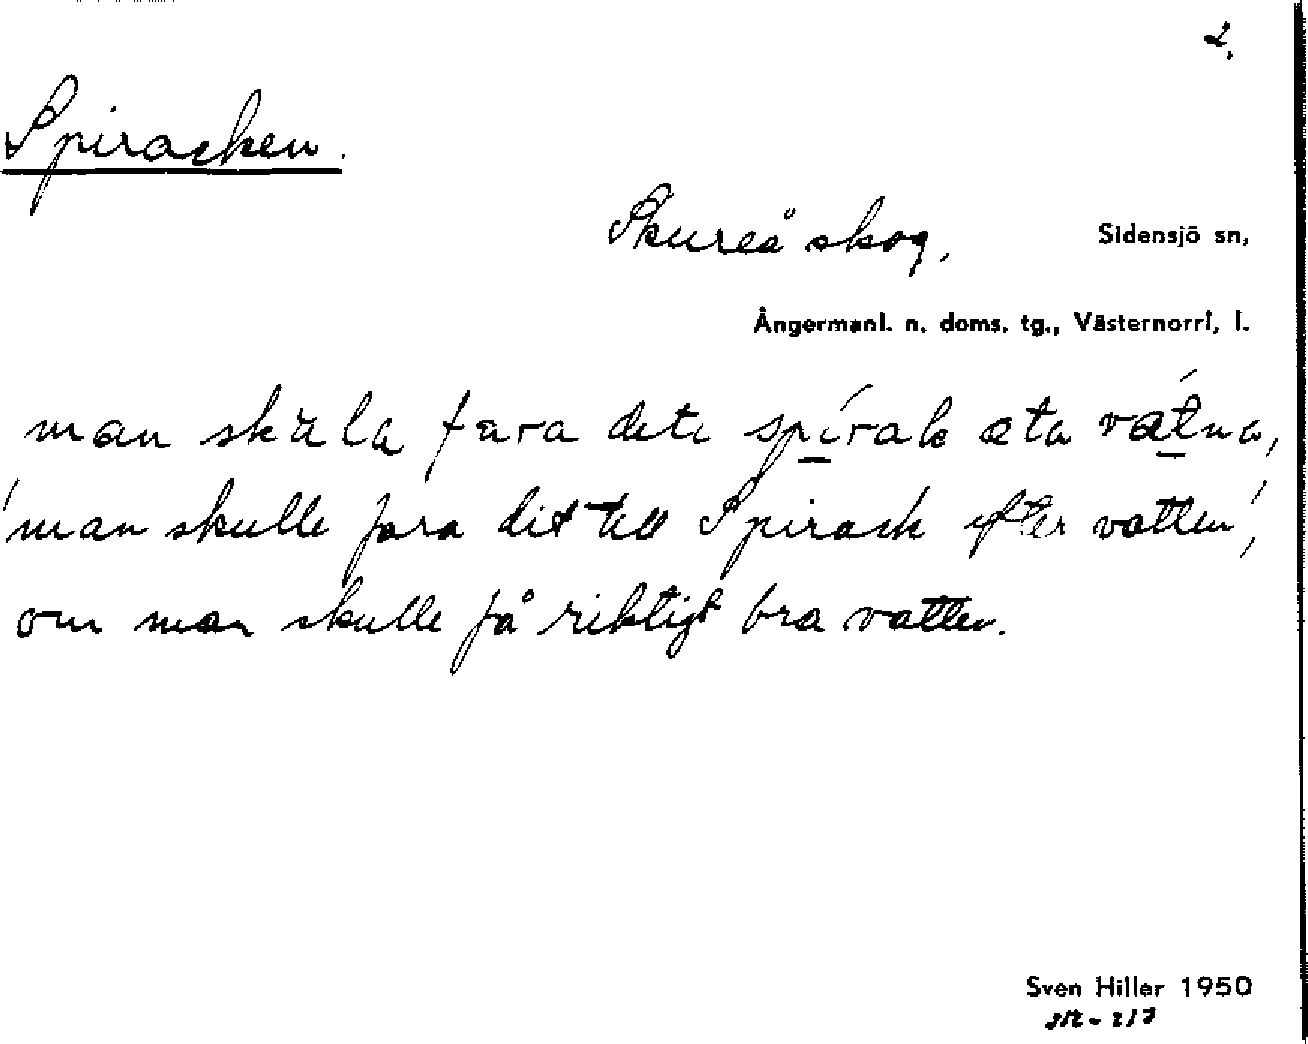 2.
Spiracken.
Skureå skog, Sidensjö sn,
Ångermanl. n. doms. tg., Västernorrl. l.
man skula fara deti spirak äta vatna,
'man skulle fara dit till Spirack efter vatten',
om man skulle få riktigt bra vatten.
Sven Hiller 1950